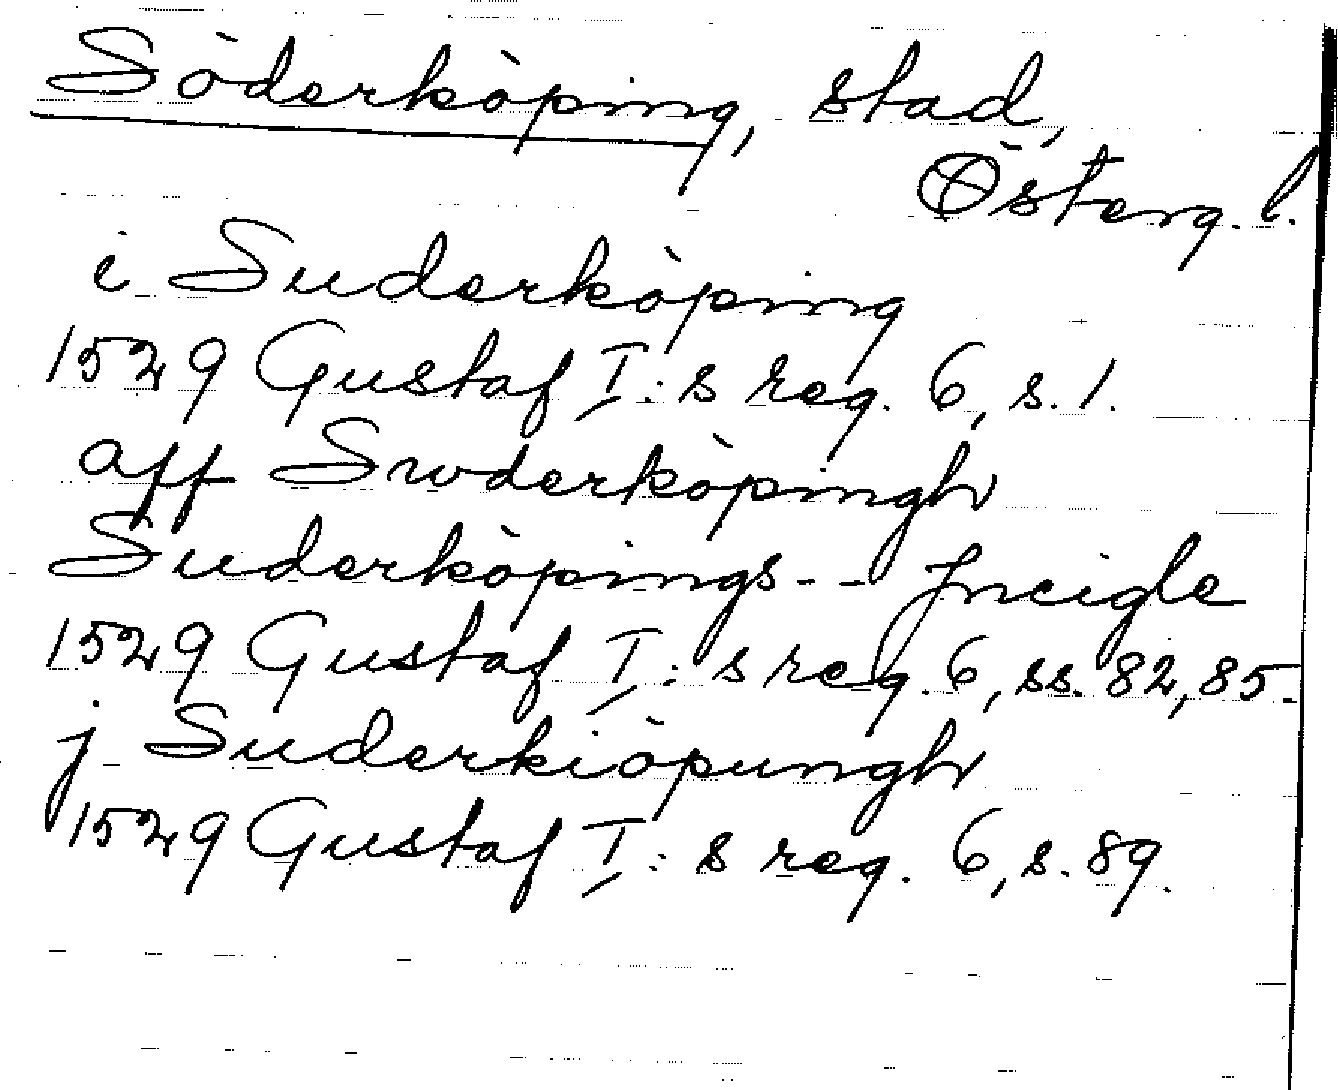 Söderköping, stad,
Österg. l.
i Suderköping
1529 Gustaf I:s reg. 6, s. 1.
aff Swderköpingh
Suderköpings -- Jncigle
1529 Gustaf I:s reg. 6, ss. 82, 85.
j Suderkiöpungh
1529 Gustaf I:s reg. 6, s. 89.